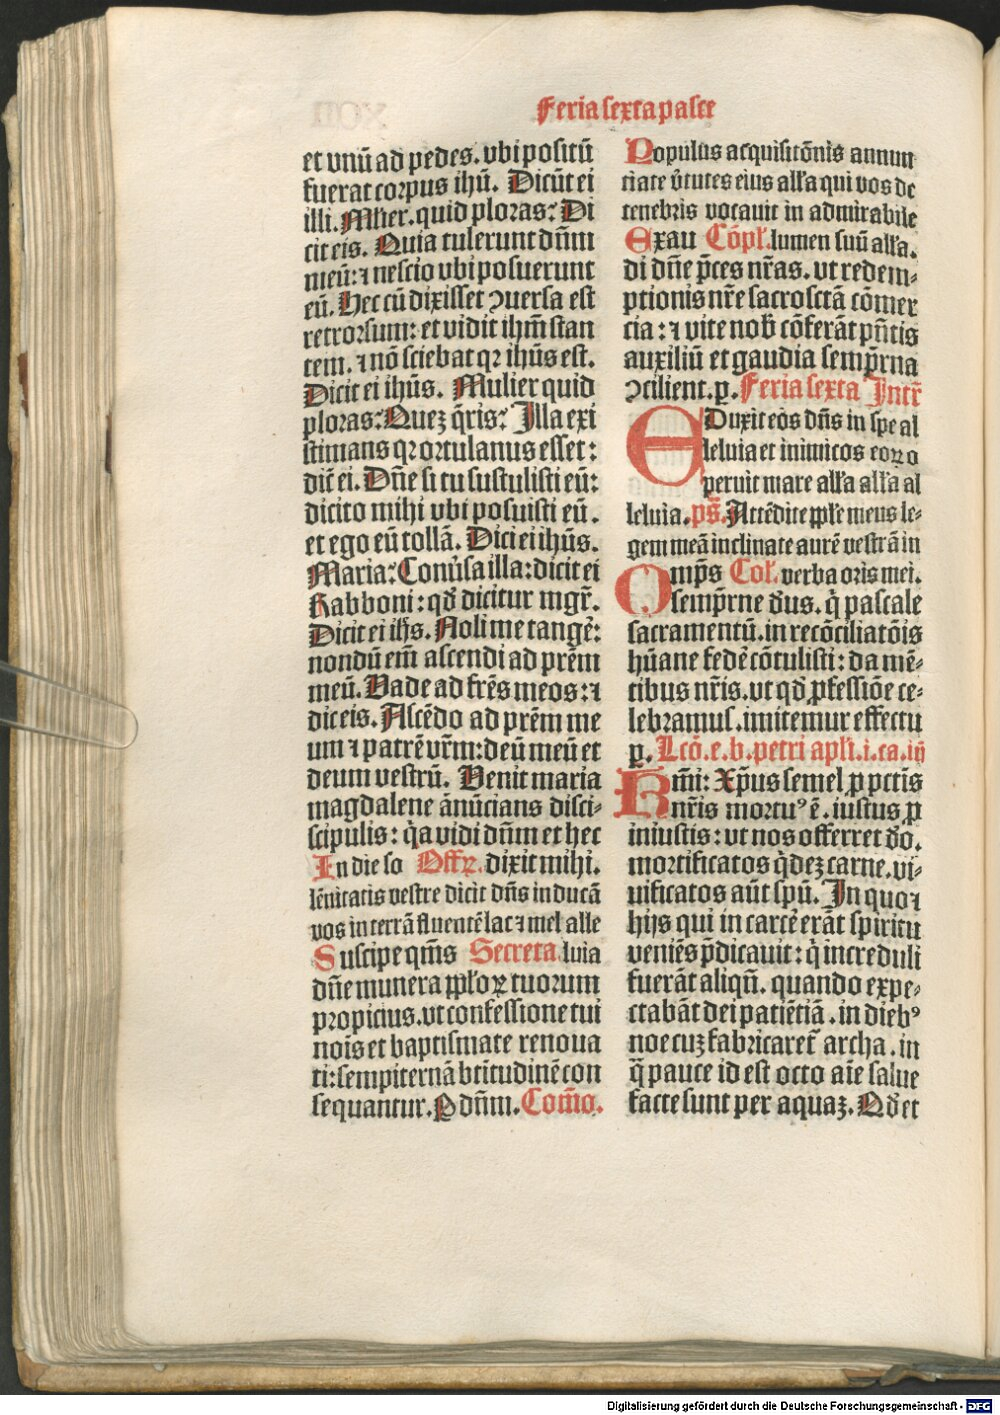 Feria sexta pasce
et vnū ad pedes. vbi positū
fuerat corpus ihū. Dicūt ei
illi. Mlier. quid ploras: Di
cit eis. Quia tulerunt dn̄m
meū: ⁊ nescio vbi posuerunt
eū. Hec cū dixisset ↄuersa est
retrorsum: et vidit ihm̄ stan
tem. ⁊ nō sciebat qꝛ ihūs est.
Dicit ei ihūs. Mulier quid
ploras: Quez q̄ris: Illa exi
stimans qꝛ ortulanus esset:
dic̄ ei. Dn̄e si tu sustulisti eū:
dicito mihi vbi posuisti eū.
et ego eū tollā. Dici ei ihūs.
Maria: Conūsa illa: dicit ei
Rabboni: qd̄ dicitur mgr̄.
Dicit ei ihs̄. Noli me tangē:
nondū em̄ ascendi ad prēm
meū. Vade ad frēs meos: ⁊
dic eis. Ascēdo ad prēm me
um ⁊ patrē vr̄m: deū meū et
deum vestrū. Venit maria
magdalene ānūcians disci-
scipulis: q̄a vidi dn̄m et hec
In die so Offꝝ. dixit mihi.
lēnitatis vestre dicit dn̄s inducā
vos in terrā fluentē lac ⁊ mel alle
Suscipe qm̄s Secreta. luia
dn̄e munera pp̄loꝝ tuorum
propicius. vt confessione tui
nōis et baptismate renoua
ti: sempiternā btītudinē con
sequantur. P dn̄m. Com̄o.
Populus acquisitōnis annun
tiate v̄tutes eius all'a qui vos de
tenebris vocauit in admirabile
Exau Cōpl'. lumen suū all'a.
di dn̄e p̄ces nr̄as. vt redem-
ptionis nr̄e sacrosctā cōmer
cia: ⁊ vite nob̄ cōferāt pn̄tis
auxiliū et gaudia semp̄rna
ↄcilient. ꝑ. Feria sexta Intr̄
EDuxit eos dn̄s in spe al
leluia et inimicos eoꝝ o
peruit mare all'a all'a al
leluia. ps̄. Attēdite pp̄le meus le-
gem meā inclinate aurē vestrā in
Omps̄ Col'. verba oris mei.
semp̄rne d̄us. q̄ pascale
sacramentū. in recōciliatōis
hūane federe cōtulisti: da mē-
tibus nr̄is. vt qd̄ ꝓfessiōe ce-
lebramus. imitemur effectu
ꝑ. Lcō. e. b. petri apl'i. i. ca. iij
Krm̄i: Xp̄us semel ꝓ pctīs
nr̄is mortuꝰ ē. iustus ꝓ
iniustis: vt nos offerret dō.
mortificatos q̄dez carne. vi-
uificatos aūt spū. In quo ⁊
hijs qui in carcē erāt spiritu
veniēs p̄dicauit: q̄ increduli
fuerāt aliqn̄. quando expe-
ctabāt dei patiētiā. in diebꝰ
noe cuz fabricaret̄ archa. in
q̄ pauce id est octo aīe salue
facte sunt per aquaz. Qd̄ et
Digitalisierung gefördert durch die Deutsche Forschungsgemeinschaft - DFG